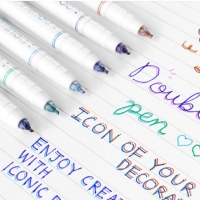 Double
pen ♡♡
ICON OF YOUR
DECORA
ENJOY CREA
WITH
ICONIC